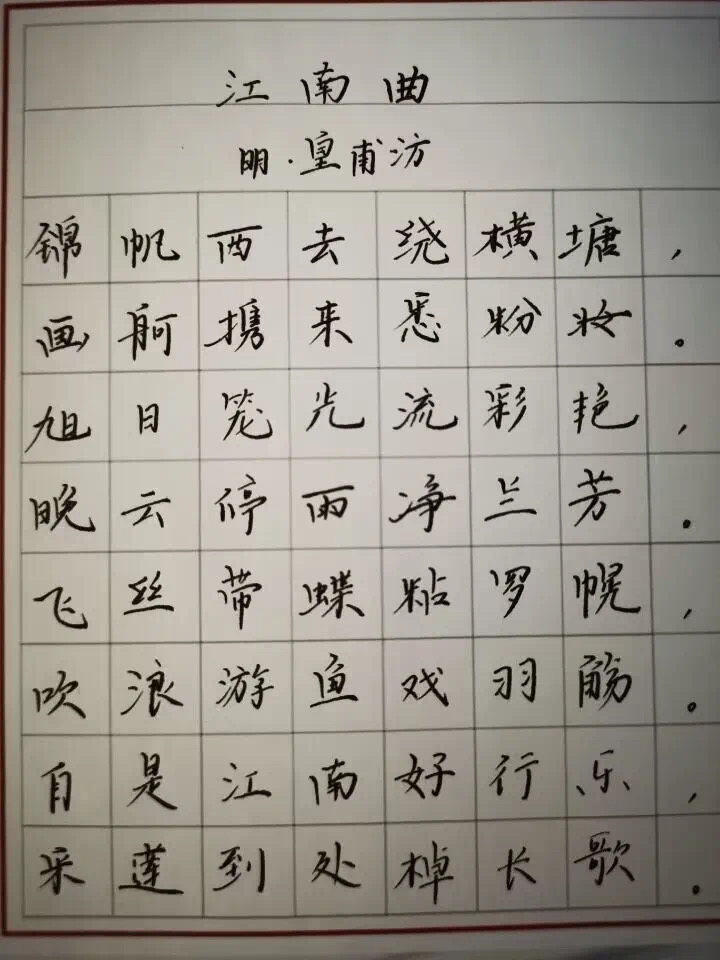 江南曲
明·皇甫汸
锦帆西去绕横塘，
画舸携来悉粉妆。
旭日笼光流彩艳，
晚云停雨净兰芳。
飞丝带蝶粘罗幌，
吹浪游鱼戏羽觞。
自是江南好行乐，
采莲到处棹长歌。